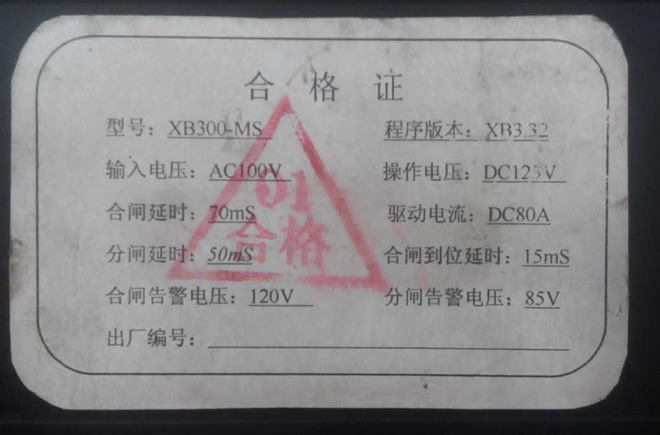 合格证
型号：XB300-MS 程序版本：XB3.32
输入电压：AC100V 操作电压：DC125V
合闸延时：70mS 驱动电流：DC80A
分闸延时：50mS 合闸到位延时：15mS
合闸告警电压：120V 分闸告警电压：85V
出厂编号：
01
合格